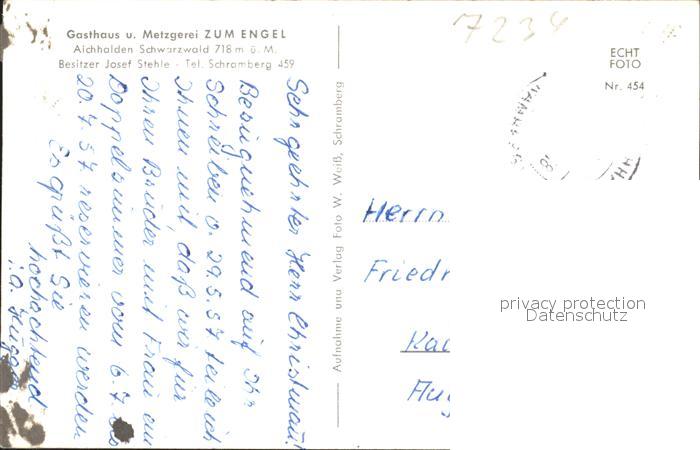 7234
Gasthaus u. Metzgerei ZUM ENGEL
Aichhalden Schwarzwald 718 m ü. M.
Besitzer Josef Stehle - Tel. Schramberg 459
ECHT
FOTO
Nr. 454
Sehrgeehrter Herr Christmann!
Bezugnehmend auf Ihr
Schreiben v. 29.5.57 teile ich
Ihnen mit, daß wir für
Ihren Bruder mit Frau ein
Doppelzimmer vom 6.7 bis
20.7.57 reservieren werden
Es grüßt Sie
hochachtend
i.A.
Aufnahme und Verlag Foto W. Weiß, Schramberg
Herrn
Friedr
privacy protection
Datenschutz